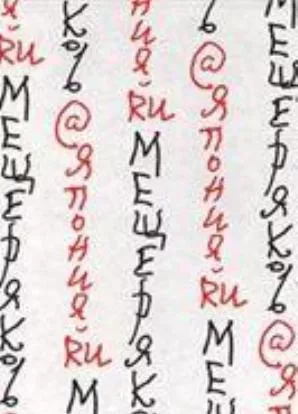 Я.RUМЕЩЕРЯК%
К%@ЯПОНИЯ.RUМ
НИЯ.RUМЕЩЕРЯК
%@ЯПОНИЯ.RUМЕ
МЕЩЕРЯК%@Я